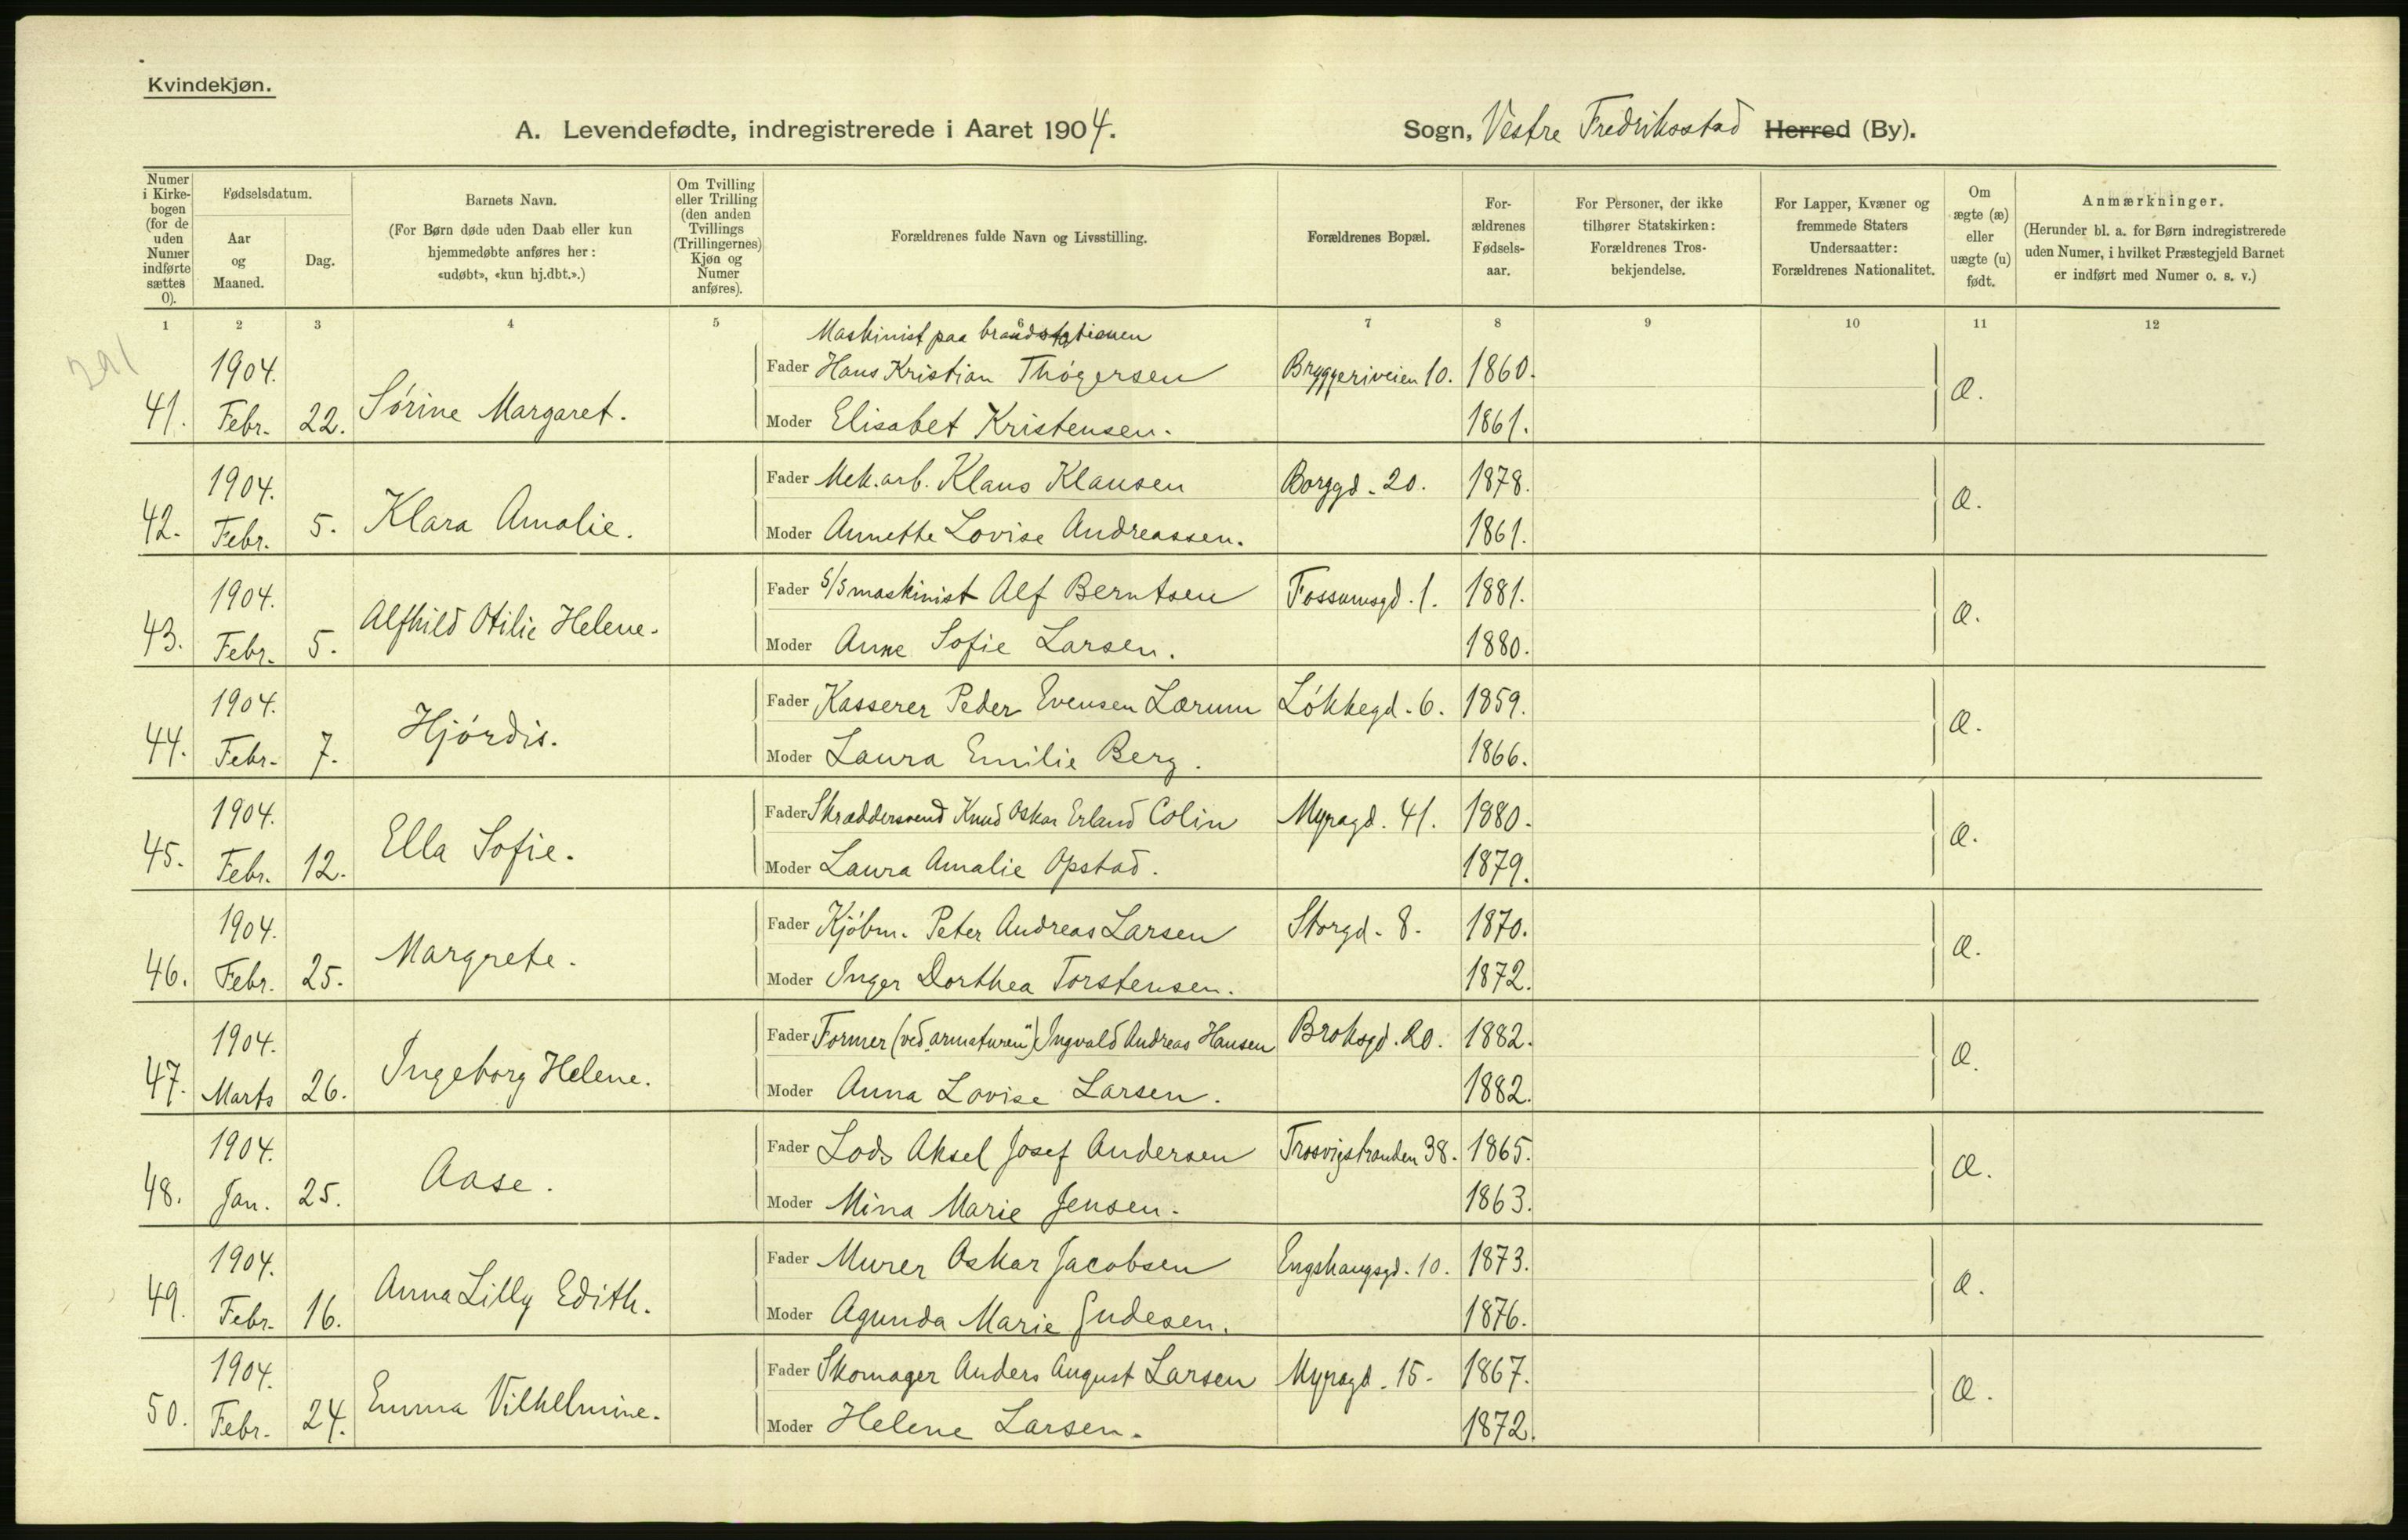 Kvindekjøn.
A. Levendefødte, indregistrerede i Aaret 1904. Sogn, Vestre Fredriksstad Herred (By).
Numer i Kirke-bogen (for de uden Numer indførte sættes 0).
Fødselsdatum.
Aar og Maaned.
Dag.
Barnets Navn.
(For Børn døde uden Daab eller kun hjemmedøbte anføres her: «udøbt», «kun hj.dbt.».)
Om Tvilling eller Trilling (den anden Tvillings (Trillingernes) Kjøn og Numer anføres).
Forældrenes fulde Navn og Livsstilling.
Forældrenes Bopæl.
For-ældrenes Fødsels-aar.
For Personer, der ikke tilhører Statskirken: Forældrenes Tros-bekjendelse.
For Lapper, Kvæner og fremmede Staters Undersaatter: Forældrenes Nationalitet.
Om ægte (æ) eller uægte (u) født.
Anmærkninger.
(Herunder bl. a. for Børn indregistrerede uden Numer, i hvilket Præstegjeld Barnet er indført med Numer o. s. v.)
1 2 3 4 5 7 8 9 10 11 12
291
Maskinist paa brandstationen
41. 1904. Febr. 22. Sórine Margaret. Fader Hans Kristian Thógersen Bryggeriveien 10. 1860. æ.
Moder Elisabet Kristensen. 1861.
42. 1904. Febr. 5. Klara Amalie. Fader Mek. arb. Klaus Klausen Borggd. 20. 1878. æ.
Moder Annette Lovise Andreassen. 1861.
43. 1904. Febr. 5. Alfhild Otilie Helene. Fader S/S maskinist Alf Berntsen Fossumsgd. 1. 1881. æ.
Moder Anne Sofie Larsen. 1880.
44. 1904. Febr. 7. Hjórdis. Fader Kasserer Peder Evensen Lærum Lókkegd. 6. 1859. æ.
Moder Laura Emilie Berg. 1866.
45. 1904. Febr. 12. Ella Sofie. Fader Skræddersvend Knud Oskar Erland Colin Myragd. 41. 1880. æ.
Moder Laura Amalie Opstad. 1879.
46. 1904. Febr. 25. Margrete. Fader Kjóbm. Peter Andreas Larsen Storgd. 8. 1870. æ.
Moder Inger Dorthea Torstensen. 1872.
47. 1904. Marts 26. Ingeborg Helene. Fader Former (ved „armaturen") Ingvald Andreas Hansen Broksgd. 20. 1882. æ.
Moder Anna Lovise Larsen. 1882.
48. 1904. Jan. 25. Aase. Fader Lods Aksel Josef Andersen Trosvigstranden 38. 1865. æ.
Moder Mina Marie Jensen. 1863.
49. 1904. Febr. 16. Anna Lilly Edith. Fader Murer Oskar Jacobsen Engshaugsgd. 10. 1873. æ.
Moder Agunda Marie Gudesen. 1876.
50. 1904. Febr. 24. Emma Vilhelmine. Fader Skomager Anders August Larsen Myragd. 15. 1867. æ.
Moder Helene Larsen. 1872.